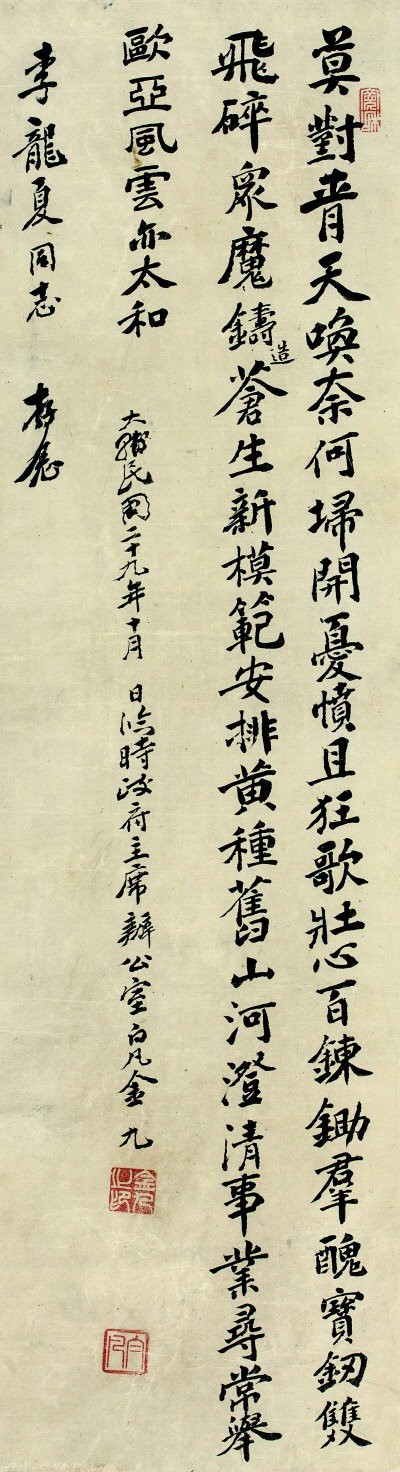 莫對青天喚奈何埽開憂憤且狂歌壯心百鍊鋤羣醜寶釰雙
飛碎眾魔鑄造蒼生新模範安排黃種舊山河澄清事業尋常舉
歐亞風雲亦太和
大韓民國二十九年十月 日臨時政府主席辦公室白凡金九
金九之印
白凡
李龍夏同志 存念